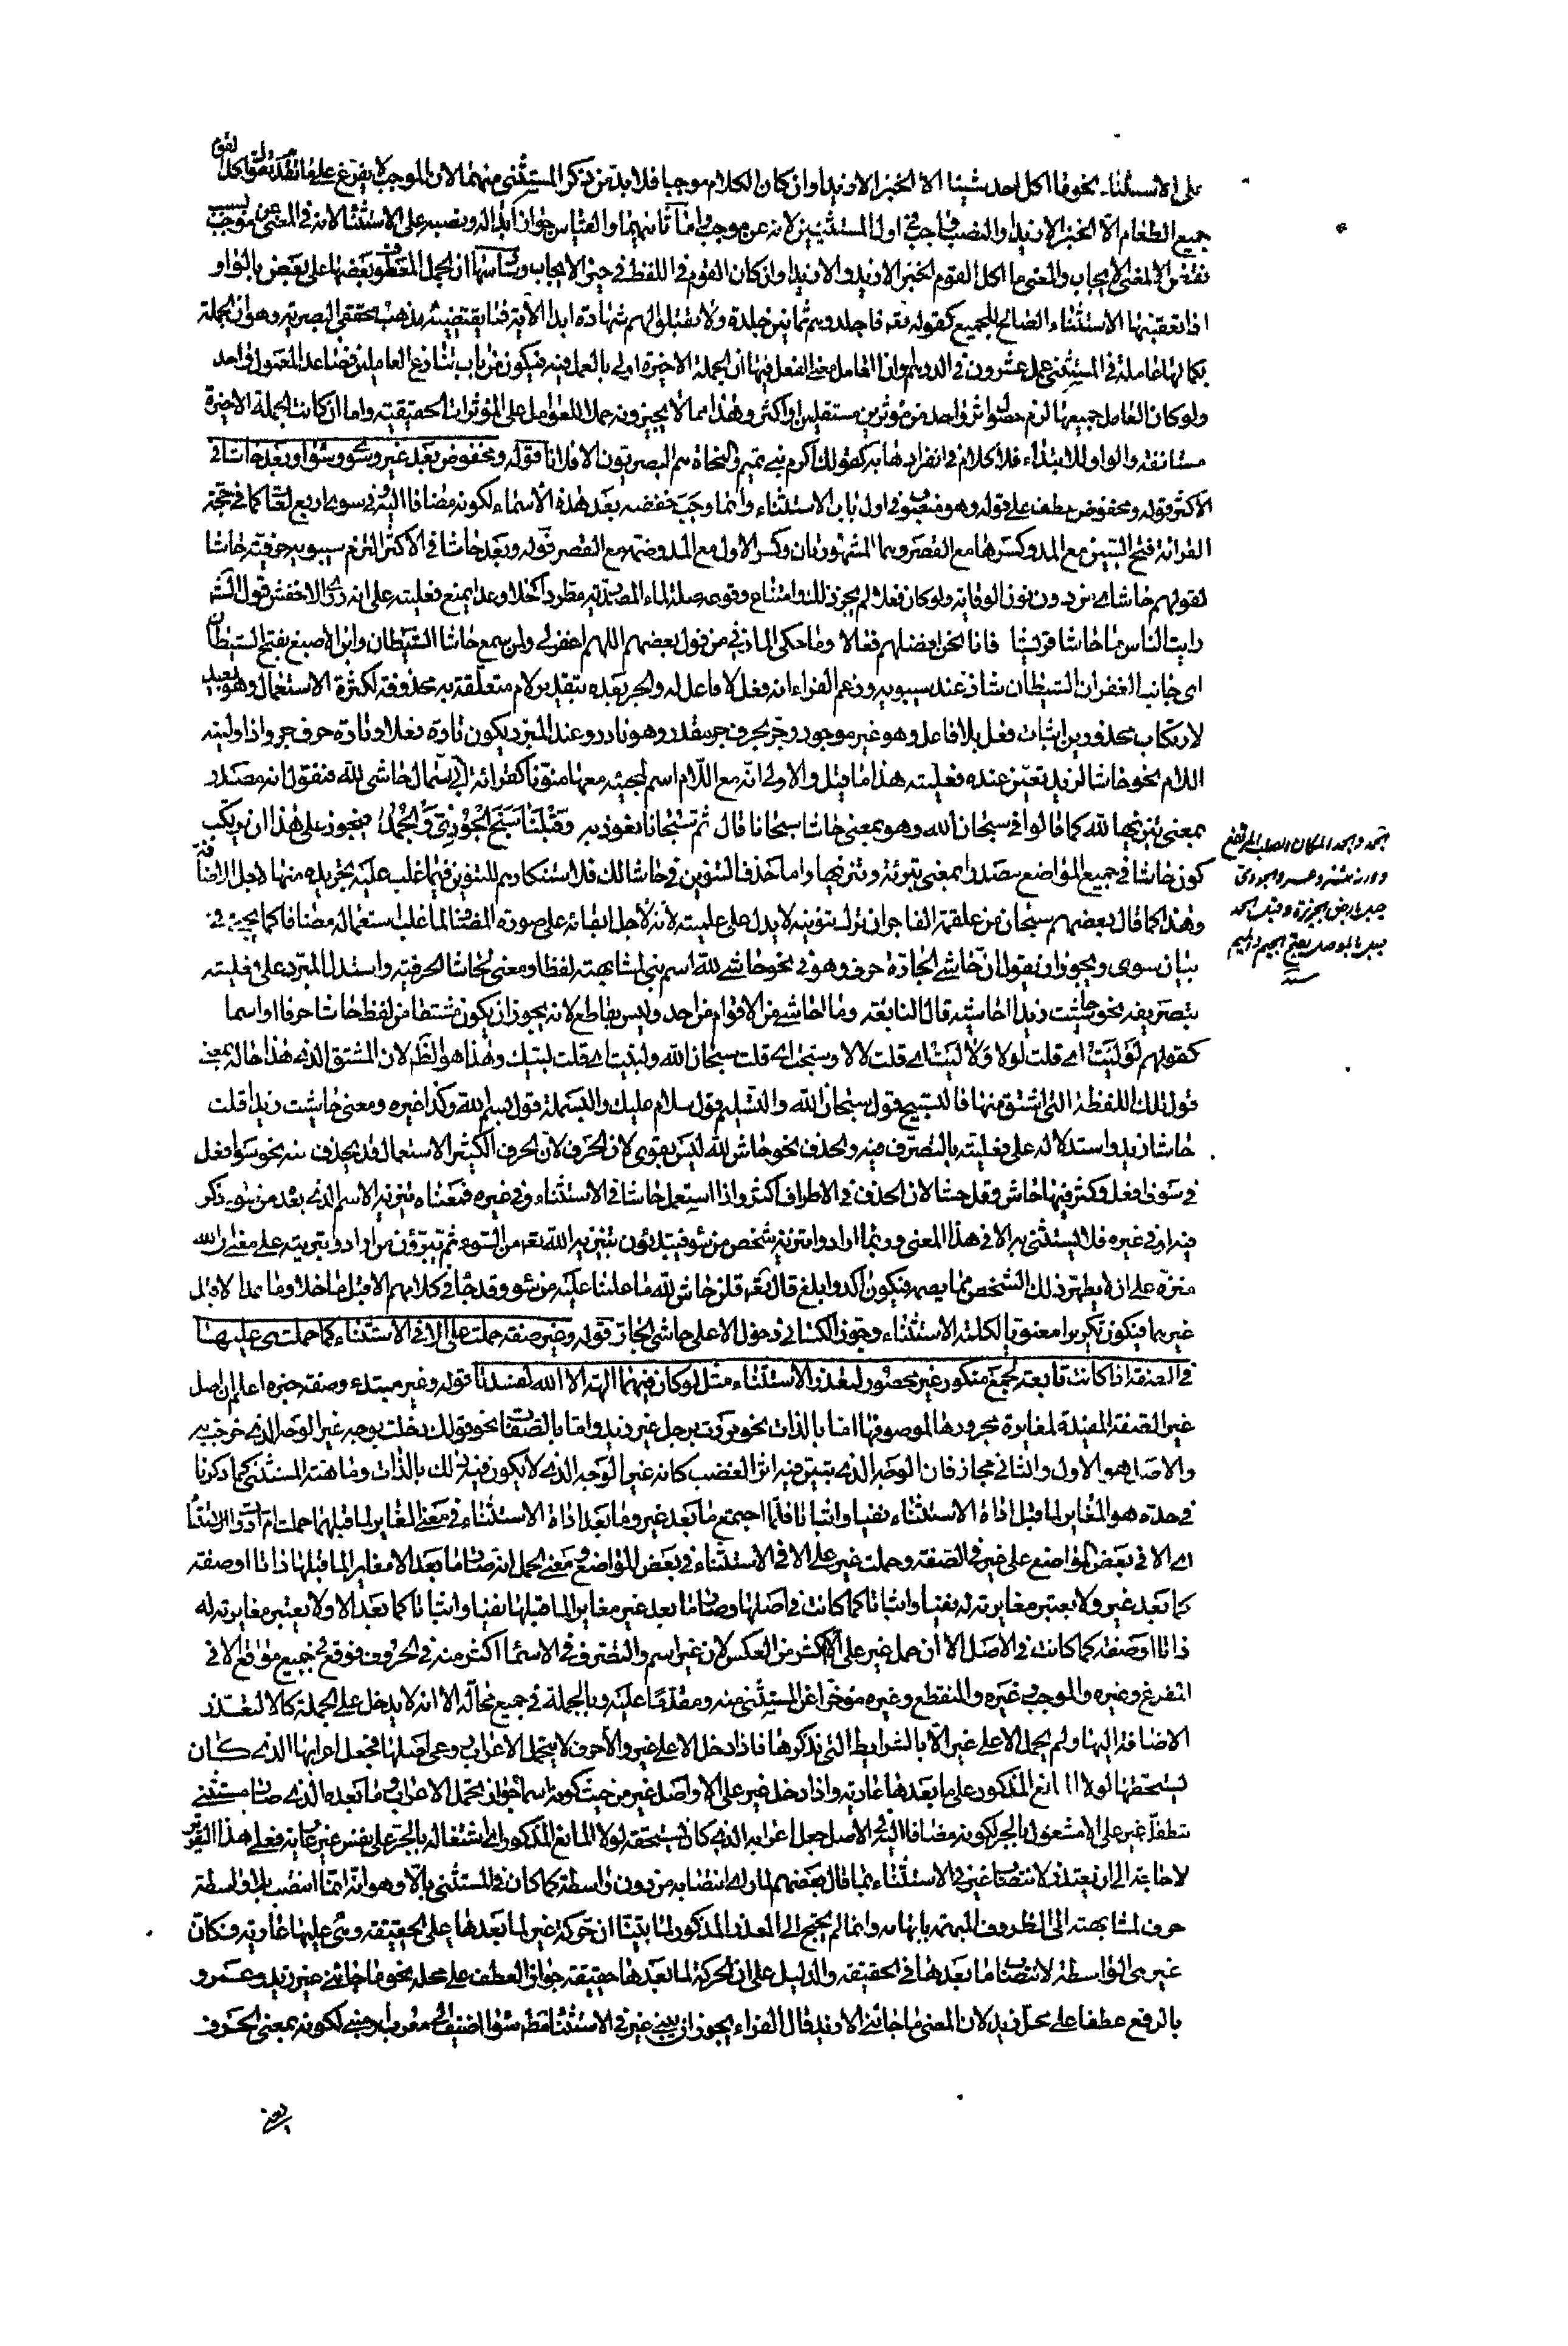 على الاستثناء نحو ما اكل احد شيئا الا الخبز الا زيدا وان كان الكلام موجبا فلا بد من ذكر المستثنى منهما لان الموجب لا يفرغ على ما تقدم تقول اكل القوم
جميع الطعام الا الخبز الا زيدا والنصب واجب في اول المستثنيين لانه عن موجب واما ثانيهما والقياس جواز ابداله ونصبه على الاستثناء لانه في المعنى عن موجب
نقض الا لمعنى الايجاب والمعنى ما اكل القوم الخبز الا زيد والا زيدا وان كان القوم في اللفظ في حيز الايجاب وسادسها ان الجمل المعطوف بعضها على بعض بالواو
اذا تعقبها الاستثناء الصالح للجميع كقوله تعه فاجلدوهم ثمانين جلدة ولا تقبلوا لهم شهادة ابدا الاية فما يقتضيه مذهب محققي البصرية وهو ان الجملة
بكمالها عاملة في المستثنى عمل عشرون في الدرهم وان العامل معنى الفعل فيها ان الجملة الاخيرة اولى بالعمل فيه فيكون من باب تنازع العاملين فصاعدا لمعمول واحد
ولو كان العامل جميعها لزم حصول اثر واحد من مؤثرين مستقلين او اكثر وهذا مما لا يجيزونه حملا للعوامل على المؤثرات الحقيقية واما ان كانت الجملة الاخيرة
مستانفة والواو للابتداء فلا كلام في انفرادها به كقولك اكرم بني تميم والنحاة هم البصريون الا فلانا قوله ومخفوض بعد غير وسوى وسواء وبعد حاشا في
الاكثر قوله ومخفوض عطف على قوله وهو منصوب في اول باب الاستثناء وانما وجب خفضه بعد هذه الاسماء لكونه مضافا اليه وفي سوى اربع لغات كما في حجة
القراءة فتح السين مع المد وكسرها مع القصر وهما المشهورتان وكسر الاول مع المد وضمه مع القصر قوله وبعد حاشا في الاكثر التزم سيبويه حرفية حاشا
لقولهم حاشاى من دون نون الوقاية ولو كان فعلا لم يجز ذلك وامتناع وقوعه صلة لما المصدرية مطردا كخلا وعدا يمنع فعليته على انه روى الاخفش قول الشاعر
رايت الناس ما حاشا قريشا فانا نحن افضلهم فعالا وما حكى المازني من قول بعضهم اللهم اغفر لي ولمن سمع حاشا الشيطان وابن الاصبغ بفتح الشيطان
اى جانب الغفران الشيطان شاذ عند سيبويه وزعم الفراء انه فعل لا فاعل له والجر بعده بتقدير لام متعلقة به محذوفة لكثرة الاستعمال وهو بعيد
لارتكاب محذورين اثبات فعل بلا فاعل وهو غير موجود وجر بحرف جر مقدر وهو نادر وعند المبرد يكون تارة فعلا وتارة حرف جر واذا وليته
اللام نحو حاشا لزيد تعين عنده فعليته هذا ما قيل والاولى انه مع اللام اسم لمجيئه معها منونا كقراءة ابي السمال حاشى لله فنقول انه مصدر
بمعنى تنزيها لله كما قالوا في سبحان الله وهو بمعنى حاشا سبحانا قال ثم سبحانا نعوذ به وقبلنا سبح الجودي والجمد فيجوز على هذا ان يرتكب
كون حاشا في جميع المواضع مصدرا بمعنى تبرئة وتنزيها واما حذف التنوين في حاشا لك فلاستنكارهم للتنوين فيما غلب عليه تجريده منها لاجل الاضافة
وهذا كما قال بعضهم سبحان من علقمة الفاجر ان ترك تنوينه لا يدل على علميته لانه لاجل ابقائه على صورة المضاف لما غلب استعماله مضافا كما يجيء في
بيان سوى ويجوز ان نقول ان حاشى الجارة حرف وهو في نحو حاشى لله اسم بني لمشابهته لفظا ومعنى لحاشا الحرفية واستدل المبرد على فعليته
بتصريفه نحو حاشيت زيدا احاشيه قال النابغة وما احاشى من الاقوام من احد وليس بقاطع لانه يجوز ان يكون مشتقا من لفظ حاشا حرفا او اسما
كقولهم لوليت اى قلت لولا ولاليت اى قلت لا لا وسبحت اى قلت سبحان الله ولبيت اى قلت لبيك وهذا هو الظ لان المشتق الذى هذا حاله بمعنى
قول تلك اللفظة التى اشتق منها فالتسبيح قول سبحان الله والتسليم قول سلام عليك والبسملة قول بسم الله وكذا غيره ومعنى حاشيت زيدا قلت
حاشا زيد واستدلاله على فعليته بالتصرف فيه والحذف نحو حاش لله ليس بقوى لان الحرف الكثير الاستعمال قد يحذف منه نحو سو افعل
في سوف افعل وكثر فيها حاش وقل حشا لان الحذف في الاطراف اكثر واذا استعمل حاشا في الاستثناء وفي غيره فمعناه تنزيه الاسم الذى بعده من سوء ذكر
فيه او في غيره فلا يستثنى به الا في هذا المعنى وربما ارادوا تنزيه شخص من سوء فيبتدئون بتنزيه الله تعه من السوء ثم يبرؤن من ارادوا تبريته على معنى ان الله
منزه على ان لا يطهر ذلك الشخص مما يصمه فيكون آكد وابلغ قال تعه قلن حاش لله ما علمنا عليه من سوء وقد جاء في كلامهم الا قبل ما خلا وما عدا لا قبل
غيرهما فيكون تكريرا معنويا لكلمة الاستثناء وجوز الكسائي دخول الا على حاشى الجارة قوله وغير صفة حملت على الا في الاستثناء كما حملت هي عليها
في الصفة اذا كانت تابعة لجمع منكور غير محصور لتعذر الاستثناء مثل لو كان فيهما آلهة الا الله لفسدتا قوله وغير مبتدء وصفة خبره اعلم ان اصل
غير الصفة المفيدة لمغايرة مجرورها لموصوفها اما بالذات نحو مررت برجل غير زيد واما بالصفات نحو قولك دخلت بوجه غير الوجه الذى خرجت به
والاصل هو الاول والثاني مجاز فان الوجه الذى تبين فيه اثر الغضب كانه غير الوجه الذى لا يكون فيه ذلك بالذات وماهية المستثنى كما ذكرنا
في حده هو المغاير لما قبل اداة الاستثناء نفيا واثباتا فلما اجتمع ما بعد غير وما بعد اداة الاستثناء في معنى المغاير لما قبلهما حملت ام ادوات الاستثناء
اى الا في بعض المواضع على غير في الصفة وحملت غير على الا في الاستثناء في بعض المواضع ومعنى الحمل انه صار ما بعد الا مغايرا لما قبلها ذاتا او صفة
كما بعد غير ولا يعتبر مغايرته له نفيا واثباتا كما كانت في اصلها وصار ما بعد غير مغايرا لما قبلها نفيا واثباتا كما بعد الا ولا يعتبر مغايرته له
ذاتا او صفة كما كانت في الاصل الا ان حمل غير على الا اكثر من العكس لان غير اسم والتصرف في الاسماء اكثر منه في الحروف فوقع في جميع مواقع الا في
التفرغ وغيره والموجب وغيره والمنقطع وغيره مؤخرا عن المستثنى منه ومقدما عليه وبالجملة في جميع محاله الا انه لا يدخل على الجملة كالا لتعذر
الاضافة اليها ولم يحمل الا على غير الا بالشرايط التى نذكرها فاذا دخل الا على غير والاحرف لا يتحمل الاعراب روعي اصلها فجعل اعرابها الذى كان
يستحقها لولا المانع المذكور على ما بعدها عارية واذا دخل غير على الا واصل غير من حيث كونه اسما جواز تحمل الاعراب وما بعده الذى صار مستثنى
بتطفل غير على الا مشغول بالجر لكونه مضافا اليه في الاصل جعل اعرابه الذى كان يستحقه لولا المانع المذكور اى اشتغاله بالجر على نفس غير عارية فعلى هذا التقرير
لا حاجة الى ان يعتذر لانتصاب غير في الاستثناء بما قال بعضهم لما راى انتصابه من دون واسطة كما كان في المستثنى بالا وهو انه انما انتصب بلا واسطة
حرف لمشابهته الى الظروف المبهمة بابهامه وانما لم يحتج الى العذر المذكور لما بينا ان حركة غير لما بعدها على الحقيقة وهى عليها عارية فكان
غير هى الواسطة لانتصاب ما بعدها في الحقيقة والدليل على ان الحركة لما بعدها حقيقة جواز العطف على محله نحو ما جائني غير زيد وعمرو
بالرفع عطفا على محل زيد لان المعنى ما جائني الا زيد قال الفراء يجوز ان يبنى غير في الاستثناء مطه سواء اضيف الى معرب او مبنى لكونه بمعنى الحرف
الجمد المكان الصلب المرتفع
جبل بارض الجزيرة